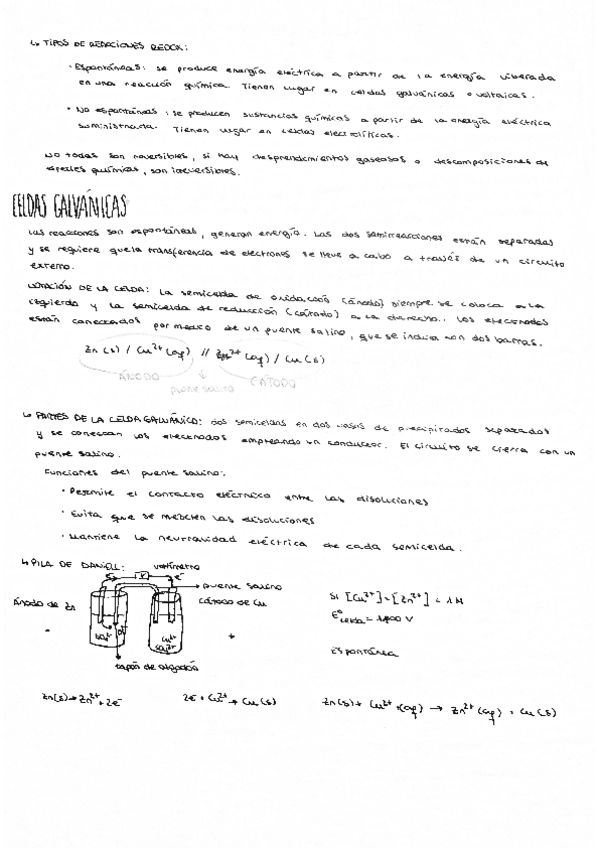 ↳ TIPOS DE REACCIONES REDOX:
· Espontáneas: se produce energía eléctrica a partir de la energía liberada
en una reacción química. Tienen lugar en celdas galvánicas o voltaicas.
· No espontáneas: se producen sustancias químicas a partir de la energía eléctrica
suministrada. Tienen lugar en celdas electrolíticas.
No todas son reversibles, si hay desprendimientos gaseosos o descomposiciones de
especies químicas, son irreversibles.
CELDAS GALVÁNICAS
Las reacciones son espontáneas, generan energía. Las dos semirreacciones están separadas
y se requiere que la transferencia de electrones se lleve a cabo a través de un circuito
externo.
NOTACIÓN DE LA CELDA: La semicelda de oxidación (ánodo) siempre se coloca a la
izquierda y la semicelda de reducción (cátodo) a la derecha. Los electrodos
están conectados por medio de un puente salino, que se indica con dos barras.
Zn (s) / Cu²⁺ (aq) // Zn²⁺ (aq) / Cu (s)
ÁNODO ↓ CÁTODO
puente salino
↳ PARTES DE LA CELDA GALVÁNICO: dos semiceldas en dos vasos de precipitados separados
y se conectan los electrodos empleando un conductor. El circuito se cierra con un
puente salino.
Funciones del puente salino:
· Permite el contacto eléctrico entre las disoluciones
· Evita que se mezclen las disoluciones
· Mantiene la neutralidad eléctrica de cada semicelda.
↳ PILA DE DANIELL: voltímetro
V e⁻
→ puente salino
Ánodo de Zn cátodo de Cu
Si [Cu²⁺] = [Zn²⁺] = 1 M
E°celda = 1,100 V
- +
Cu²⁺
SO₄²⁻
Espontánea
tapón de algodón
Zn(s) → Zn²⁺ + 2e⁻ 2e⁻ + Cu²⁺ → Cu(s) Zn(s) + Cu²⁺ (aq) → Zn²⁺ (aq) + Cu (s)